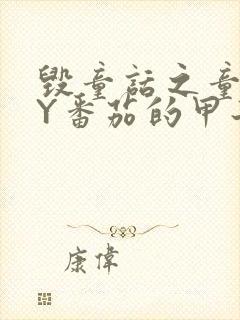 毁童话之童
Y番茄的甲
康偉